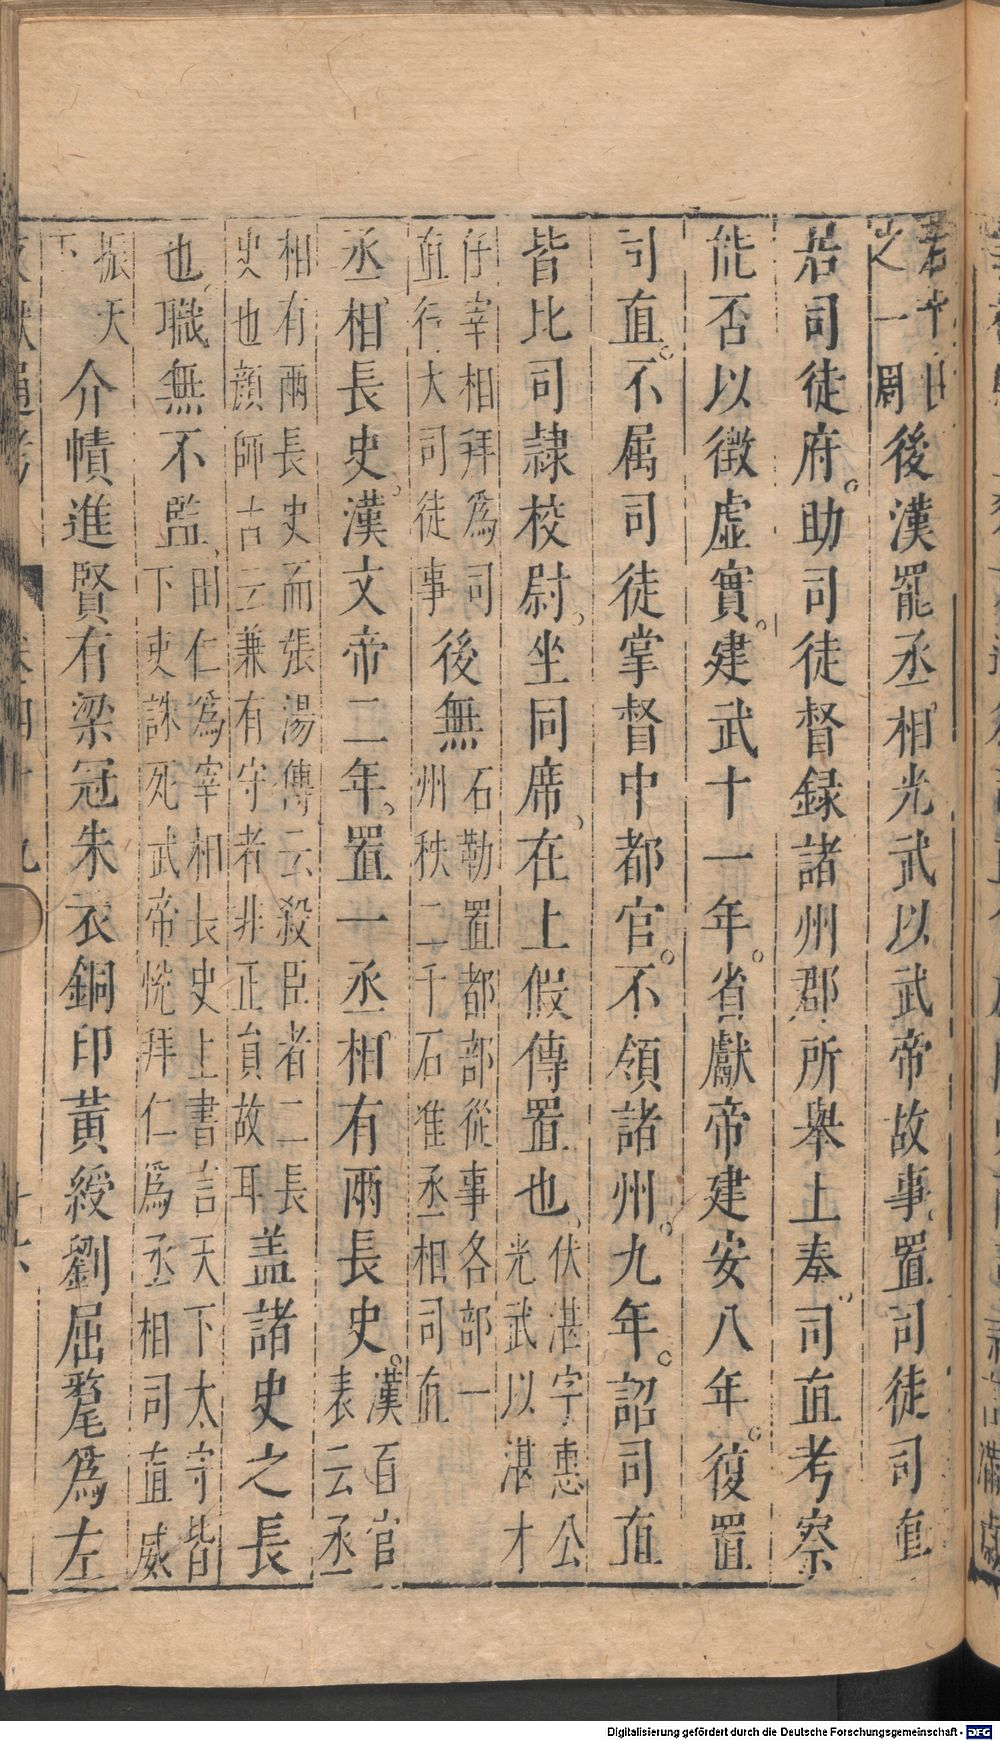 若
之一周後漢罷丞相光武以武帝故事置司徒司直
居司徒府助司徒督録諸州郡所舉上奉司直考察
能否以徴虚實建武十一年省獻帝建安八年復置
司直不属司徒掌督中都官不領諸州九年詔司直
皆比司隷校尉坐同席在上假傳置也伏湛字惠公
光武以湛才
仔宰相拜爲司
直行大司徒事後無石勒置都部從事各部一
州秩二千石准丞相司直
丞相長史漢文帝二年置一丞相有兩長史漢百官
表云丞
相有兩長史而張湯傳云殺臣者二長
史也顔師古云兼有守者非正負故耳盖諸史之長
也職無不監田仁爲宰相長史上書言天下太守皆
下吏誅死武帝恱拜仁爲丞相司直威
振天
下介幘進賢有梁冠朱衣銅印黃綬劉屈氂爲左
Digitalisierung gefördert durch die Deutsche Forschungsgemeinschaft - DFG